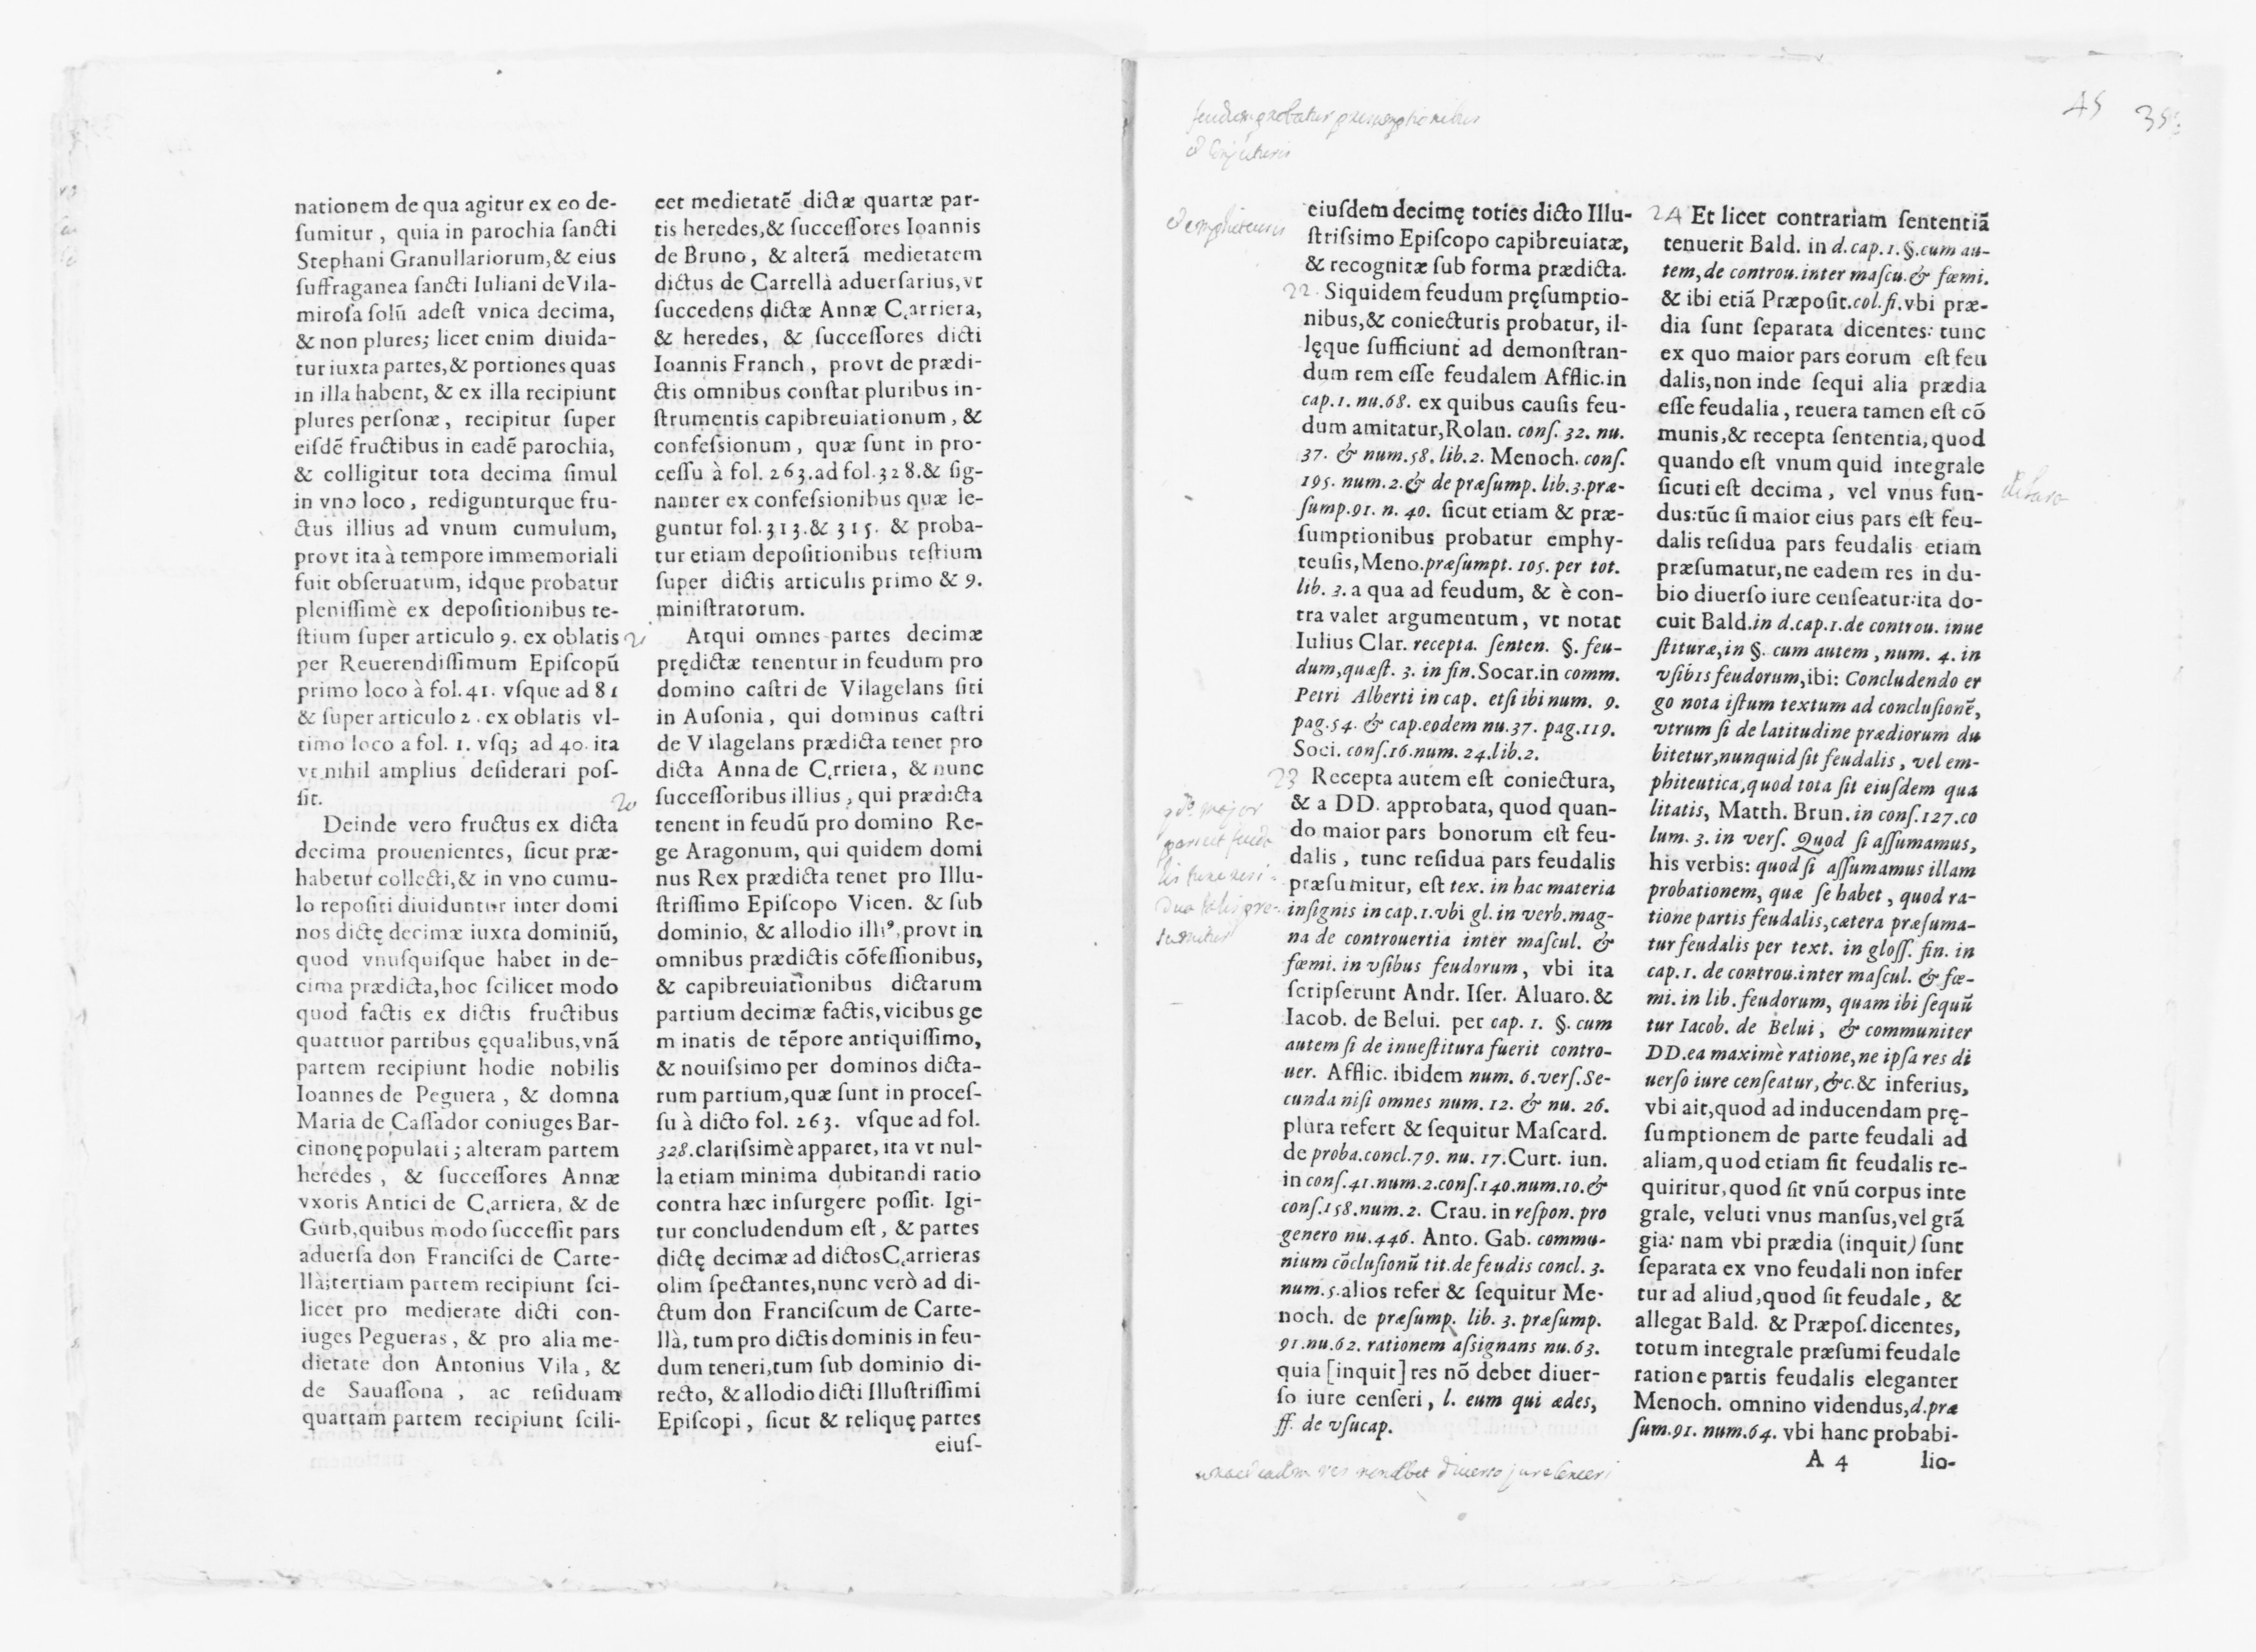 nationem de qua agitur ex eo de-
sumitur, quia in parochia sancti
Stephani Granullariorum,& eius
suffraganea sancti Iuliani de Vila-
mirosa solũ adest vnica decima,
& non plures; licet enim diuida-
tur iuxta partes,& portiones quas
in illa habent, & ex illa recipiunt
plures personæ, recipitur super
eisdẽ fructibus in eadẽ parochia,
& colligitur tota decima simul
in vno loco, redigunturque fru-
ctus illius ad vnum cumulum,
provt ita à tempore immemoriali
fuit obseruatum, idque probatur
plenissimè ex depositionibus te-
stium super articulo 9. ex oblatis
per Reuerendissimum Episcopũ
primo loco à fol. 41. vsque ad 81
& super articulo 2. ex oblatis vl-
timo loco a fol. 1. vsq; ad 40. ita
vt nihil amplius desiderari pos-
sit.
20
Deinde vero fructus ex dicta
decima prouenientes, sicut præ-
habetur collecti,& in vno cumu-
lo repositi diuiduntur inter domi
nos dictę decimæ iuxta dominiũ,
quod vnusquisque habet in de-
cima prædicta,hoc scilicet modo
quod factis ex dictis fructibus
quattuor partibus ęqualibus,vnã
partem recipiunt hodie nobilis
Ioannes de Peguera, & domna
Maria de Cassador coniuges Bar-
cinonę populati; alteram partem
heredes, & successores Annæ
vxoris Antici de Çarriera, & de
Gurb,quibus modo successit pars
aduersa don Francisci de Carte-
llà;tertiam partem recipiunt sci-
licet pro medietate dicti con-
iuges Pegueras, & pro alia me-
dietate don Antonius Vila, &
de Sauassona, ac residuam
quartam partem recipiunt scili-
cet medietatẽ dictæ quartæ par-
tis heredes,& successores Ioannis
de Bruno, & alterã medietatem
dictus de Cartellà aduersarius,vt
succedens dictæ Annæ Çarriera,
& heredes, & successores dicti
Ioannis Franch, provt de prædi-
ctis omnibus constat pluribus in-
strumentis capibreuiationum, &
confessionum, quæ sunt in pro-
cessu à fol. 263.ad fol.328.& sig-
nanter ex confessionibus quæ le-
guntur fol.313.& 315. & proba-
tur etiam depositionibus testium
super dictis articulis primo & 9.
ministratorum.
21
Atqui omnes partes decimæ
prędictæ tenentur in feudum pro
domino castri de Vilagelans siti
in Ausonia, qui dominus castri
de Vilagelans prædicta tenet pro
dicta Anna de Çrriera, & nunc
successoribus illius, qui prædicta
tenent in feudũ pro domino Re-
ge Aragonum, qui quidem domi
nus Rex prædicta tenet pro Illu-
strissimo Episcopo Vicen. & sub
dominio, & allodio illi⁹,provt in
omnibus prædictis cõfessionibus,
& capibreuiationibus dictarum
partium decimæ factis,vicibus ge
m inatis de tẽpore antiquissimo,
& nouissimo per dominos dicta-
rum partium,quæ sunt in proces-
su à dicto fol. 263. vsque ad fol.
328.clarissimè apparet, ita vt nul-
la etiam minima dubitandi ratio
contra hæc insurgere possit. Igi-
tur concludendum est, & partes
dictę decimæ ad dictos Çarrieras
olim spectantes,nunc verò ad di-
ctum don Franciscum de Carte-
llà, tum pro dictis dominis in feu-
dum teneri,tum sub dominio di-
recto, & allodio dicti Illustrissimi
Episcopi, sicut & reliquę partes
eius-
45
feudum probatur presumptionibus
& conjecturis
& emphiteusis
eiusdem decimę toties dicto Illu-
strissimo Episcopo capibreuiatæ,
& recognitæ sub forma prædicta.
22 Siquidem feudum pręsumptio-
nibus,& coniecturis probatur, il-
lęque sufficiunt ad demonstran-
dum rem esse feudalem Afflic.in
cap.1. nu.68. ex quibus causis feu-
dum amitatur,Rolan. cons. 32. nu.
37. & num.58. lib.2. Menoch. cons.
195. num.2.& de præsump. lib.3.præ-
sump.91. n. 40. sicut etiam & præ-
sumptionibus probatur emphy-
teusis,Meno.præsumpt. 105. per tot.
lib. 3. a qua ad feudum, & è con-
tra valet argumentum, vt notat
Iulius Clar. recepta. senten. §. feu-
dum,quæst. 3. in fin.Socar.in comm.
Petri Alberti in cap. etsi ibi num. 9.
pag.54. & cap.eodem nu.37. pag.119.
Soci. cons.16.num. 24.lib.2.
23 Recepta autem est coniectura,
& a DD. approbata, quod quan-
do maior pars bonorum est feu-
dalis, tunc residua pars feudalis
præsumitur, est tex. in hac materia
insignis in cap.1.vbi gl. in verb.mag-
na de controuertia inter mascul. &
fœmi. in vsibus feudorum, vbi ita
scripserunt Andr. Iser. Aluaro.&
Iacob. de Belui. per cap. 1. §. cum
autem si de inuestitura fuerit contro-
uer. Afflic. ibidem num. 6.vers.Se-
cunda nisi omnes num. 12. & nu. 26.
plura refert & sequitur Mascard.
de proba.concl.79. nu. 17.Curt. iun.
in cons.41.num.2.cons.140.num.10.&
cons.158.num.2. Crau. in respon. pro
genero nu.446. Anto. Gab. commu-
nium cõclusionũ tit.de feudis concl. 3.
num.5.alios refer & sequitur Me-
noch. de præsump. lib. 3. præsump.
91.nu.62. rationem assignans nu.63.
quia [inquit] res nõ debet diuer-
so iure censeri, l. eum qui ædes,
ff. de vsucap.
24 Et licet contrariam sententiã
tenuerit Bald. in d.cap.1.§.cum au-
tem,de controu.inter mascu.& fœmi.
& ibi etiã Præposit.col.fi.vbi præ-
dia sunt separata dicentes: tunc
ex quo maior pars eorum est feu
dalis,non inde sequi alia prædia
esse feudalia, reuera tamen est cõ
munis,& recepta sententia,quod
quando est vnum quid integrale
sicuti est decima, vel vnus fun-
dus:tũc si maior eius pars est feu-
dalis residua pars feudalis etiam
præsumatur,ne eadem res in du-
bio diuerso iure censeatur:ita do-
cuit Bald.in d.cap.1.de controu. inue
stituræ,in §. cum autem, num. 4. in
vsibis feudorum,ibi: Concludendo er
go nota istum textum ad conclusionẽ,
vtrum si de latitudine prædiorum du
bitetur,nunquid sit feudalis, vel em-
phiteutica,quod tota sit eiusdem qua
litatis, Matth. Brun.in cons.127.co
lum. 3. in vers. Quod si assumamus,
his verbis: quod si assumamus illam
probationem, quæ se habet, quod ra-
tione partis feudalis,cætera præsuma-
tur feudalis per text. in gloss. fin. in
cap.1. de controu.inter mascul. & fœ-
mi. in lib. feudorum, quam ibi sequũ
tur Iacob. de Belui, & communiter
DD.ea maximè ratione,ne ipsa res di
uerso iure censeatur,&c.& inferius,
vbi ait,quod ad inducendam prę-
sumptionem de parte feudali ad
aliam,quod etiam sit feudalis re-
quiritur,quod sit vnũ corpus inte
grale, veluti vnus mansus,vel grã
gia: nam vbi prædia (inquit) sunt
separata ex vno feudali non infer
tur ad aliud,quod sit feudale, &
allegat Bald. & Præpos.dicentes,
totum integrale præsumi feudale
ratione partis feudalis eleganter
Menoch. omnino videndus,d.præ
sum.91. num.64. vbi hanc probabi-
A 4 lio-